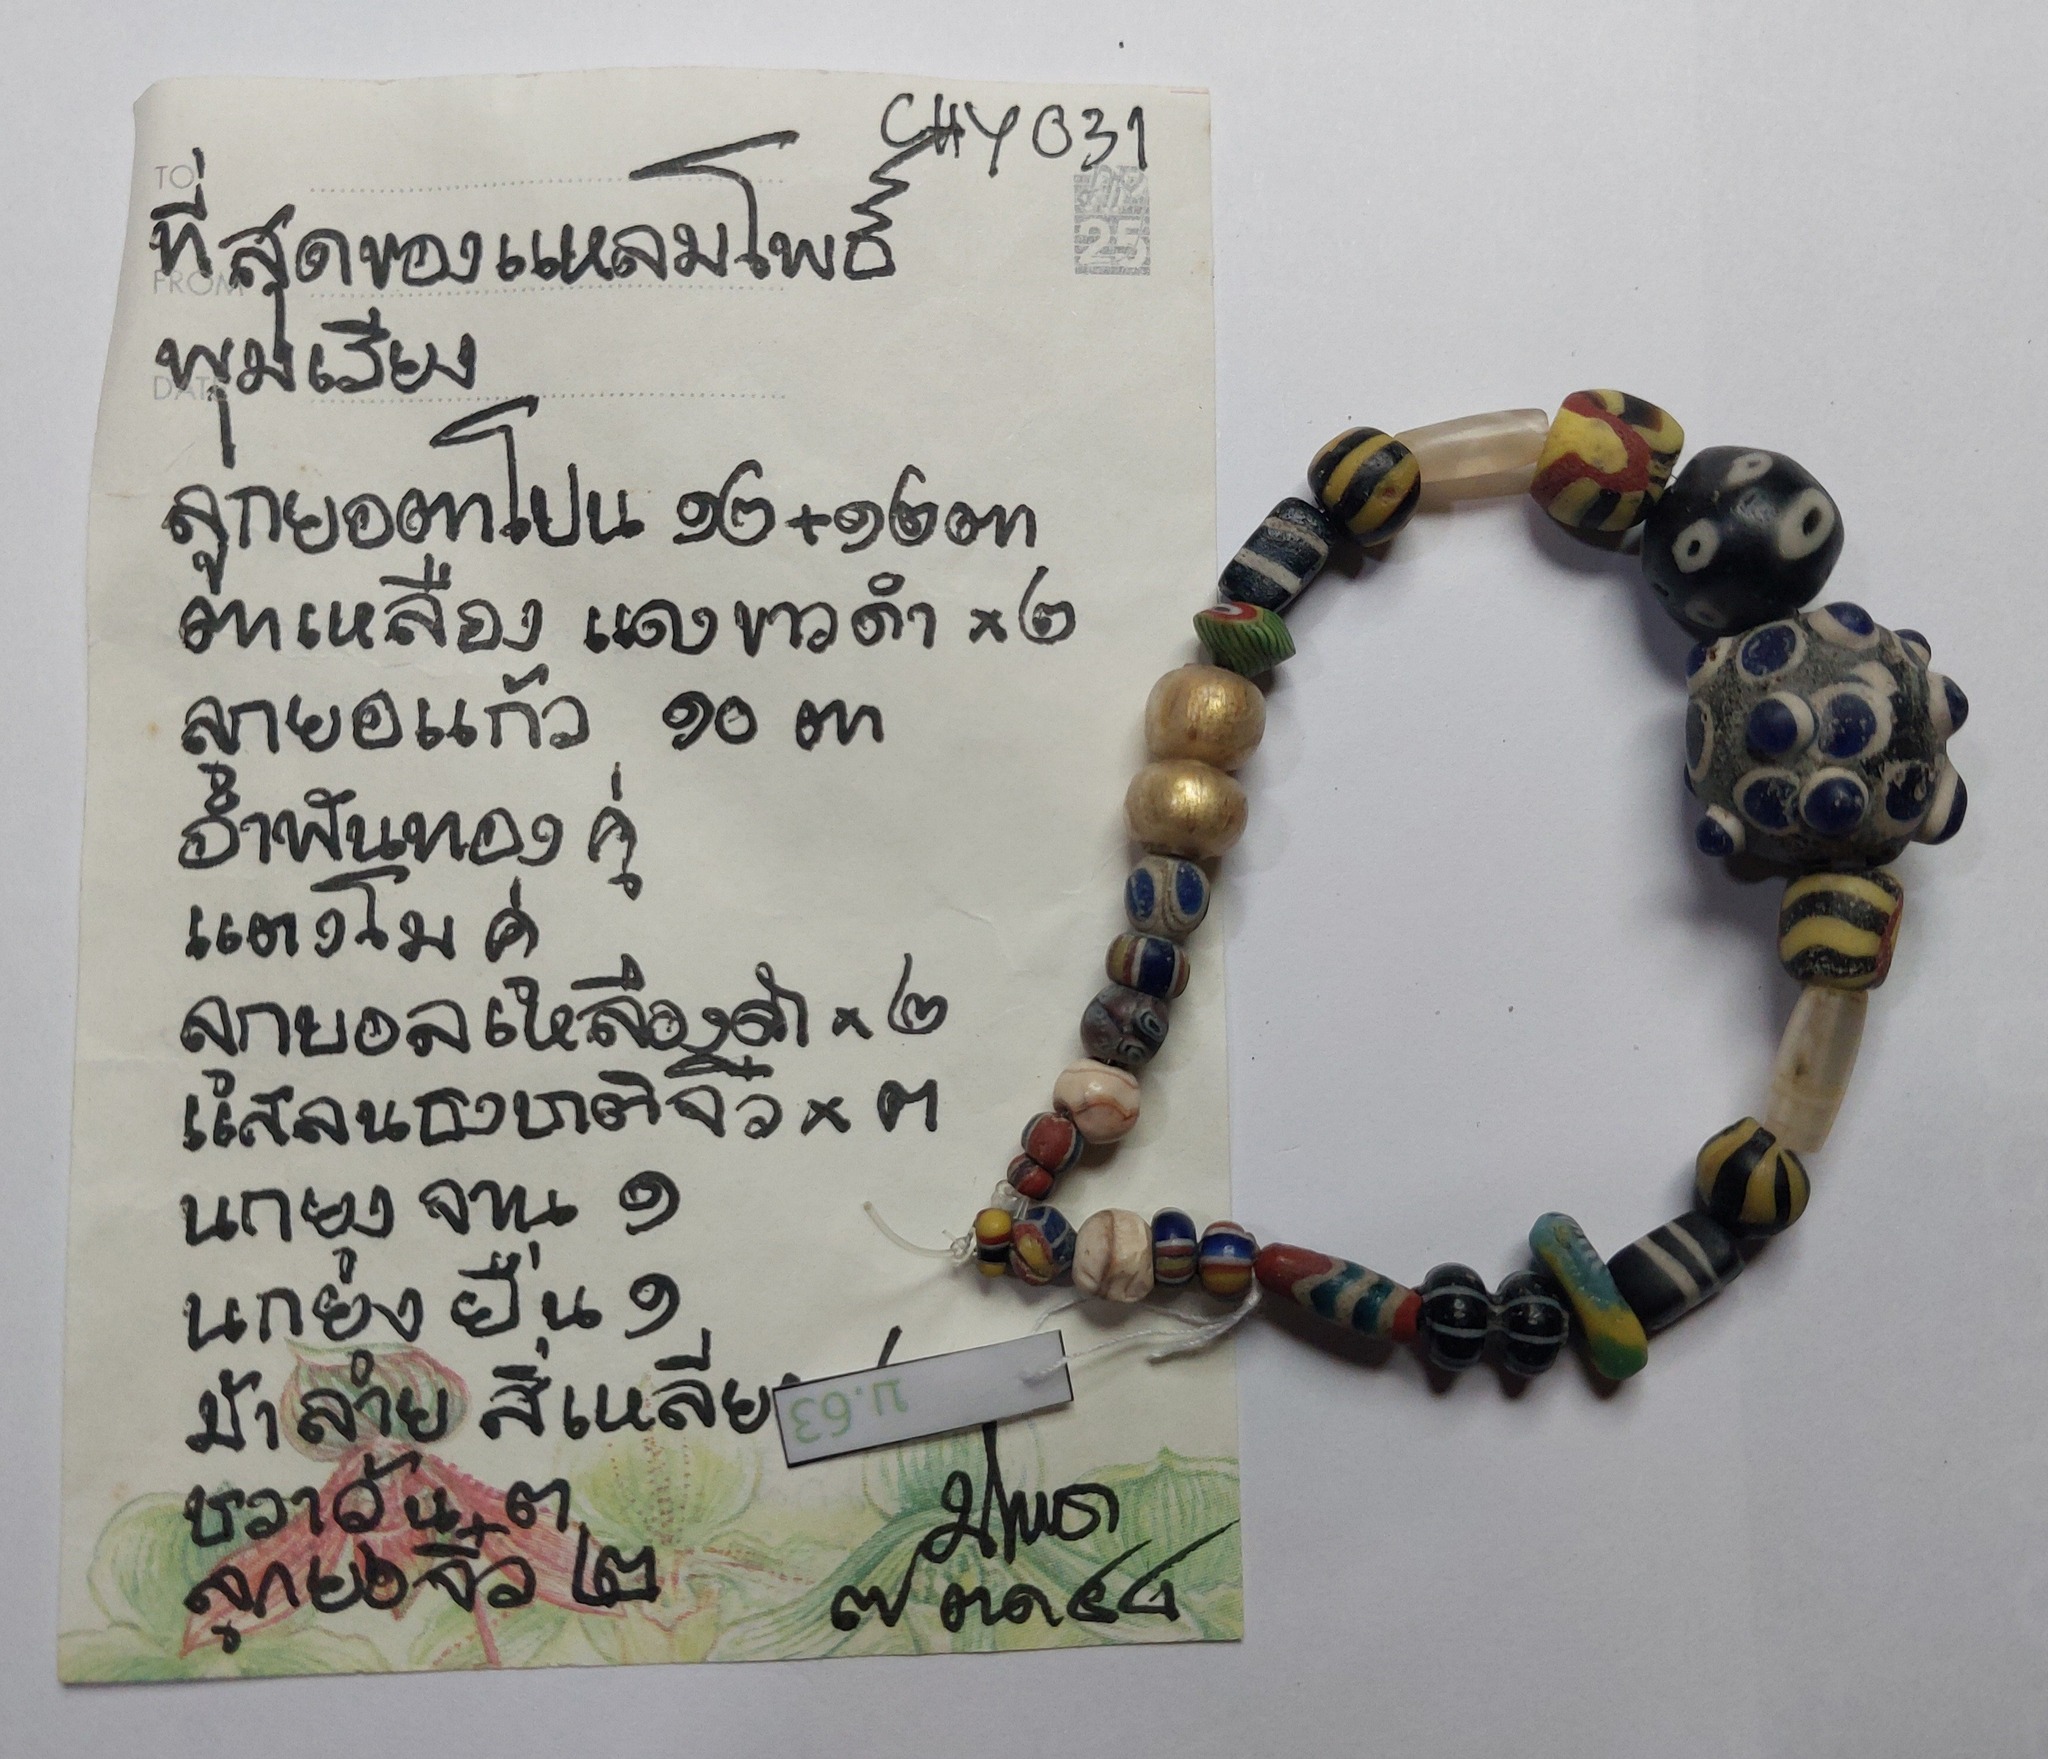 CHY031
TO
ที่สุดของแหลมโพธิ์
FROM
พุมเรียง
DATE
25
ลูกยอตาโปน ๑๒+๑๒ตา
ตาเหลือง แดงขาวดำ ×๒
ลูกยอแก้ว ๑๐ ตา
อำพันทอง คู่
แตงโม คู่
ลูกยอลเหลืองดำ × ๒
แสลนธงชาติจิ๋ว × ๓
นกยูง จาน ๑
นกยูง ยืน ๑
ม้าลาย สี่เหลี่ย
ชวาวัน ๓
ลูกยอจิ๋ว ๒
บ.63
๗ ตค ๕๔